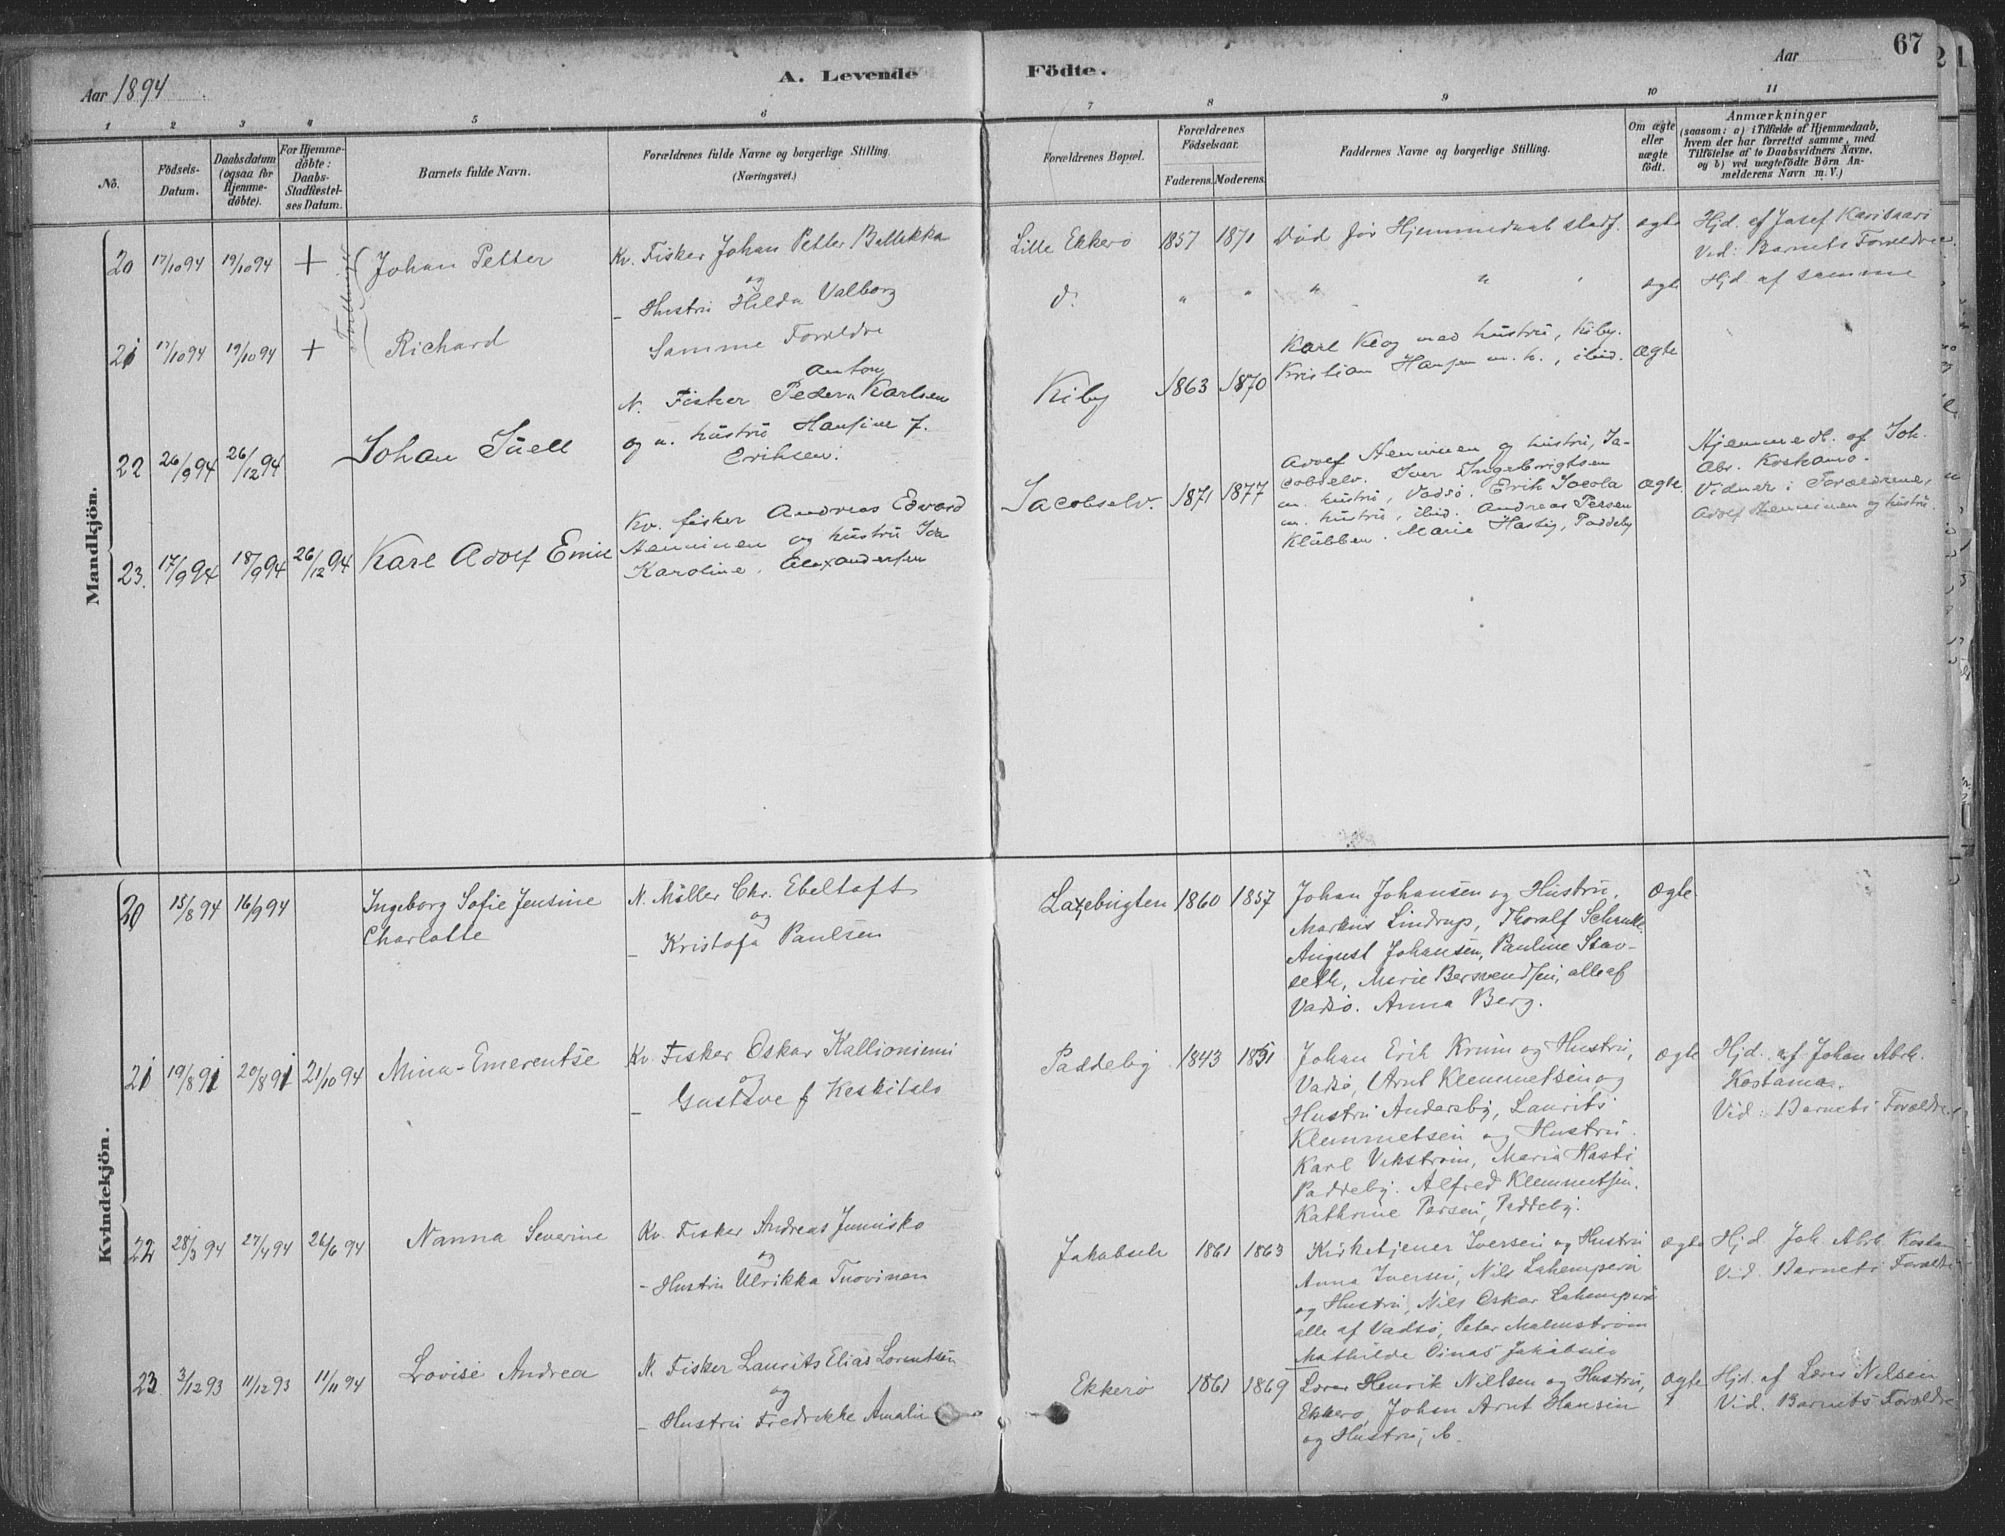 Aar 1894
A. Levende
Födte.
Aar
67
1 2 3 4 5 6 7 8 9 10 11
Nö.
Födsels-
Datum.
Daabsdatum
(ogsaa for
Hjemme-
döbte).
For Hjemme-
döbte:
Daabs-
Stadfæstel-
ses Datum.
Barnets fulde Navn.
Forældrenes fulde Navne og borgerlige Stilling.
(Næringsvei.)
Forældrenes Bopæl.
Forældrenes
Födselsaar.
Faderens. Moderens.
Faddernes Navne og borgerlige Stilling.
Om ægte
eller
uægte
födt.
Anmærkninger
(saasom: a) i Tilfælde af Hjemmedaab,
hvem der har forrettet samme, med
Tilföielse af to Daabsvidners Navne,
og b) ved uægtefödte Börn An-
melderens Navn m. V.)
Mandkjön.
20 17/10 94 19/10 94 +
Johan Petter
Kv. Fisker Johan Petter Ballikka
og
- Hustru Hilda Valborg
Lille Ekkerö 1857 1871
Död før Hjemmedaab stadf.
ægte
Hjd. af Josef Karisaari
Vid. Barnets Forældre.
21 17/10 94 19/10 94 +
Richard
Samme Forældre
d. " " " " "
ægte
Hjd. af samme
22 26/9 94 26/12 94
Johan Juell
N. Fisker Peder Anton Karlsen
og n. hustru Hansine J.
Eriksen.
Kiby 1863 1870
Karl Klog med hustru, Kiby.
Kristian Hansen m. h., ibid.
Ægte
23. 17/9 94 18/9 94 26/12 94
Karl Adolf Emil
Kv. fisker Andreas Edvard
Henninen og hustru Ida
Karoline. Alexandersen
Jacobselv. 1871 1877
Adolf Henninen og hustru, Ja-
cobselv. Iver Ingebrigtsen
m. hustru, Vadsø. Erik Jocola
m. hustru, ibid. Andreas Persen
Klubben. Marie Hastig, Paddeby
Ægte.
Hjemmedt. af Joh.
Abr. Koskamo.
Vidner: Forældrene,
Adolf Henninen og hustru.
Kvindekjön.
20 15/8 94 16/9 94
Ingeborg Sofie Jensine
Charlotte
N. Möller Chr. Ebeltoft
og
- Kristofa Paulsen
Laxebugten 1860 1857
Johan Johansen og Hustru,
Markus Lindrup, Thoralf
August Johansen, Pauline Stav-
seth, Marie Bersvendsen, alle af
Vadsø. Anna Berg.
Ægte
21 19/8 91 20/8 91 21/10 94
Mina-Emerentse
Kv. Fisker Oskar Kallioniemi
og
- Gustave f Keskitalo
Paddeby 1843 1851
Johan Erik Krum og Hustru,
Vadsø, Arnt Klemmetsen og
Hustru Andersby, Laurits
Klemmetsen og Hustru.
Karl Vikström, Maria Hasti
Paddeby. Alfred Klemmetsen.
Kathrine Persen, Paddeby.
Ægte
Hjd. af Johan Abrh.
Kostama.
Vid: Barnets Forældre
22 28/3 94 27/4 94 26/6 94
Nanna Severine
Kv. Fisker Andreas Junnisko
og
- Hustru Ulrikka Tuovinen
Jakobselv 1861 1863
Kirketjener Iversen og Hustru
Anna Iversen, Nils Lahempera
og Hustru, Nils Oskar Lahempera
alle af Vadsø, Peter Malmström
Mathilde Oinas Jakobselv
ægte
Hjd. Joh. Abrh. Kostam
Vid. Barnets Forældre
23. 3/12 93 11/12 93 11/11 94
Lovise Andrea
N. Fisker Laurits Elias Lorentsen
og
- Hustru Fredrikke Amalie
Ekkerö 1861 1869
Lærer Henrik Nielsen og Hustru,
Ekkerö, Johan Arnt Hansen
og Hustru,
Ægte
Hjd. af Lærer Nilsen
Vid. Barnets Forældre